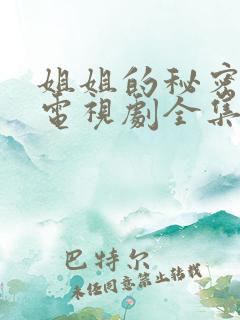 姐姐的秘密
電視劇全集
巴特尔
未经同意禁止转载